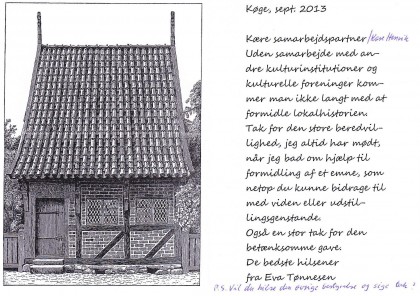 Køge, sept. 2013
Kære samarbejdspartner/Kære Henrik
Uden samarbejde med an-
dre kulturinstitutioner og
kulturelle foreninger kom-
mer man ikke langt med at
formidle lokalhistorien.
Tak for den store beredvil-
lighed, jeg altid har mødt,
når jeg bad om hjælp til
formidling af et emne, som
netop du kunne bidrage til
med viden eller udstil-
lingsgenstande.
Også en stor tak for den
betænksomme gave.
De bedste hilsener
fra Eva Tønnesen
P.S. Vil du hilse den øvrige bestyrelse og sige tak